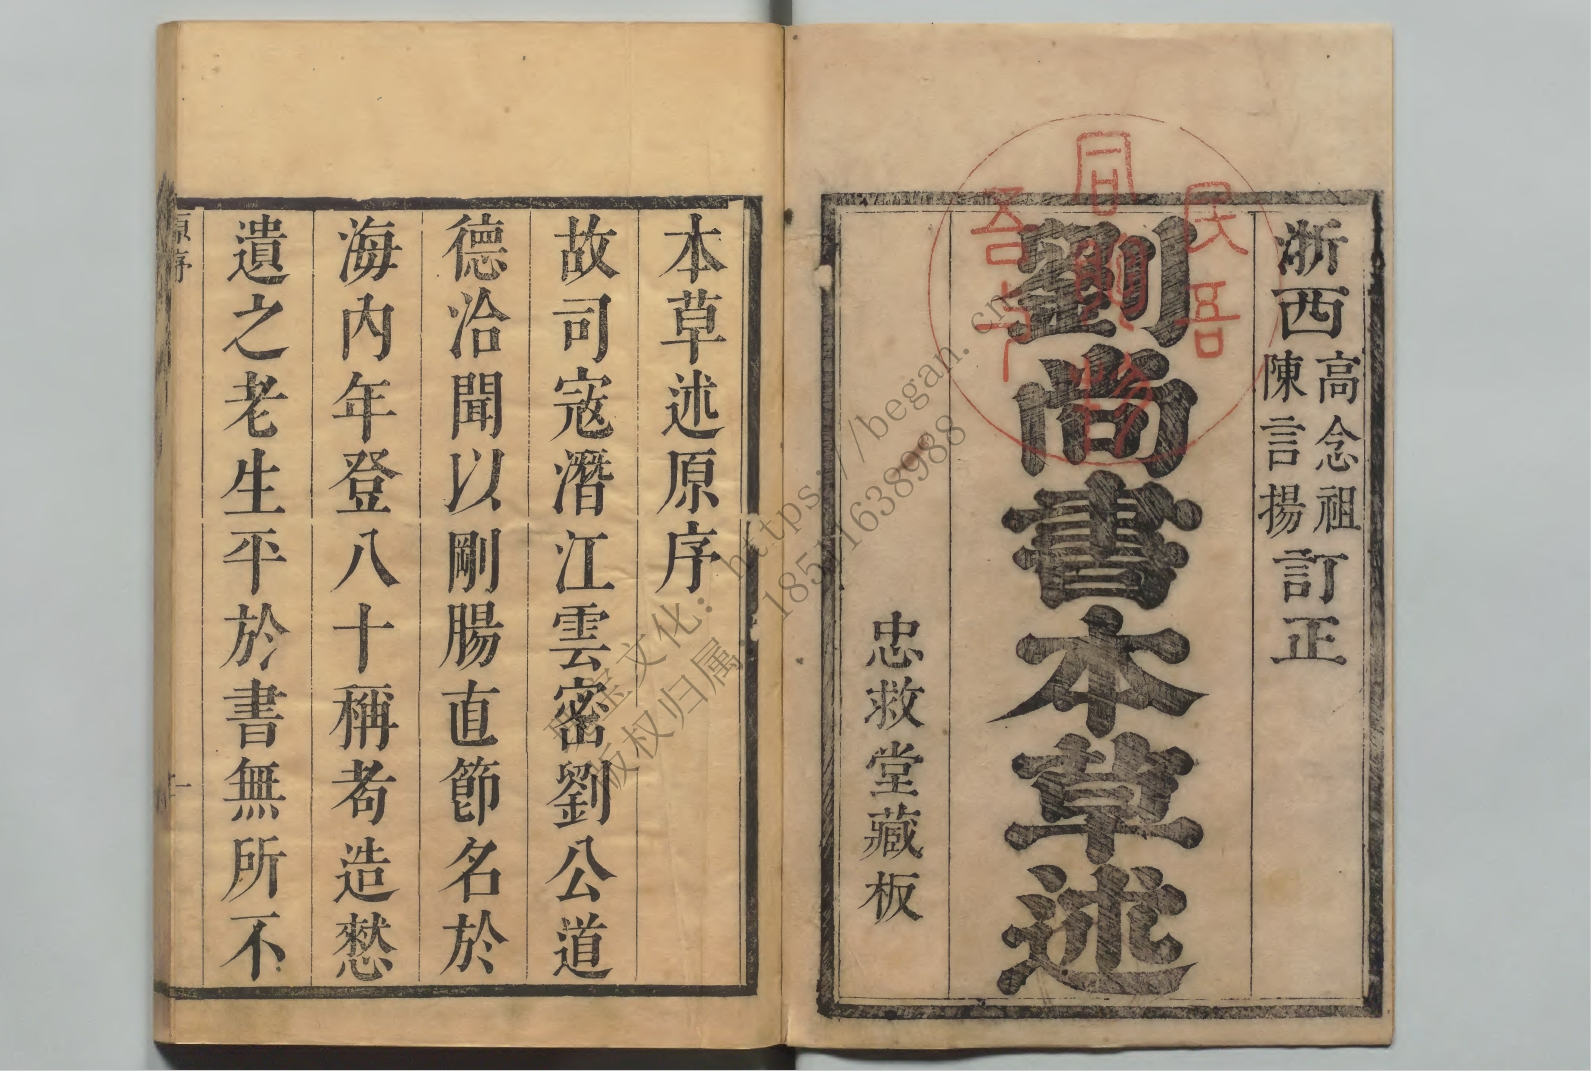 浙西高念祖陳言揚訂正
劉尚書本草述
忠救堂藏板
民吾同胞
物吾與
本草述原序
故司寇潛江雲密劉公道
德洽聞以剛腸直節名於
海内年登八十稱耇造憖
遺之老生平於書無所不
原序
一
https://began.cn
文化:
版权归属: